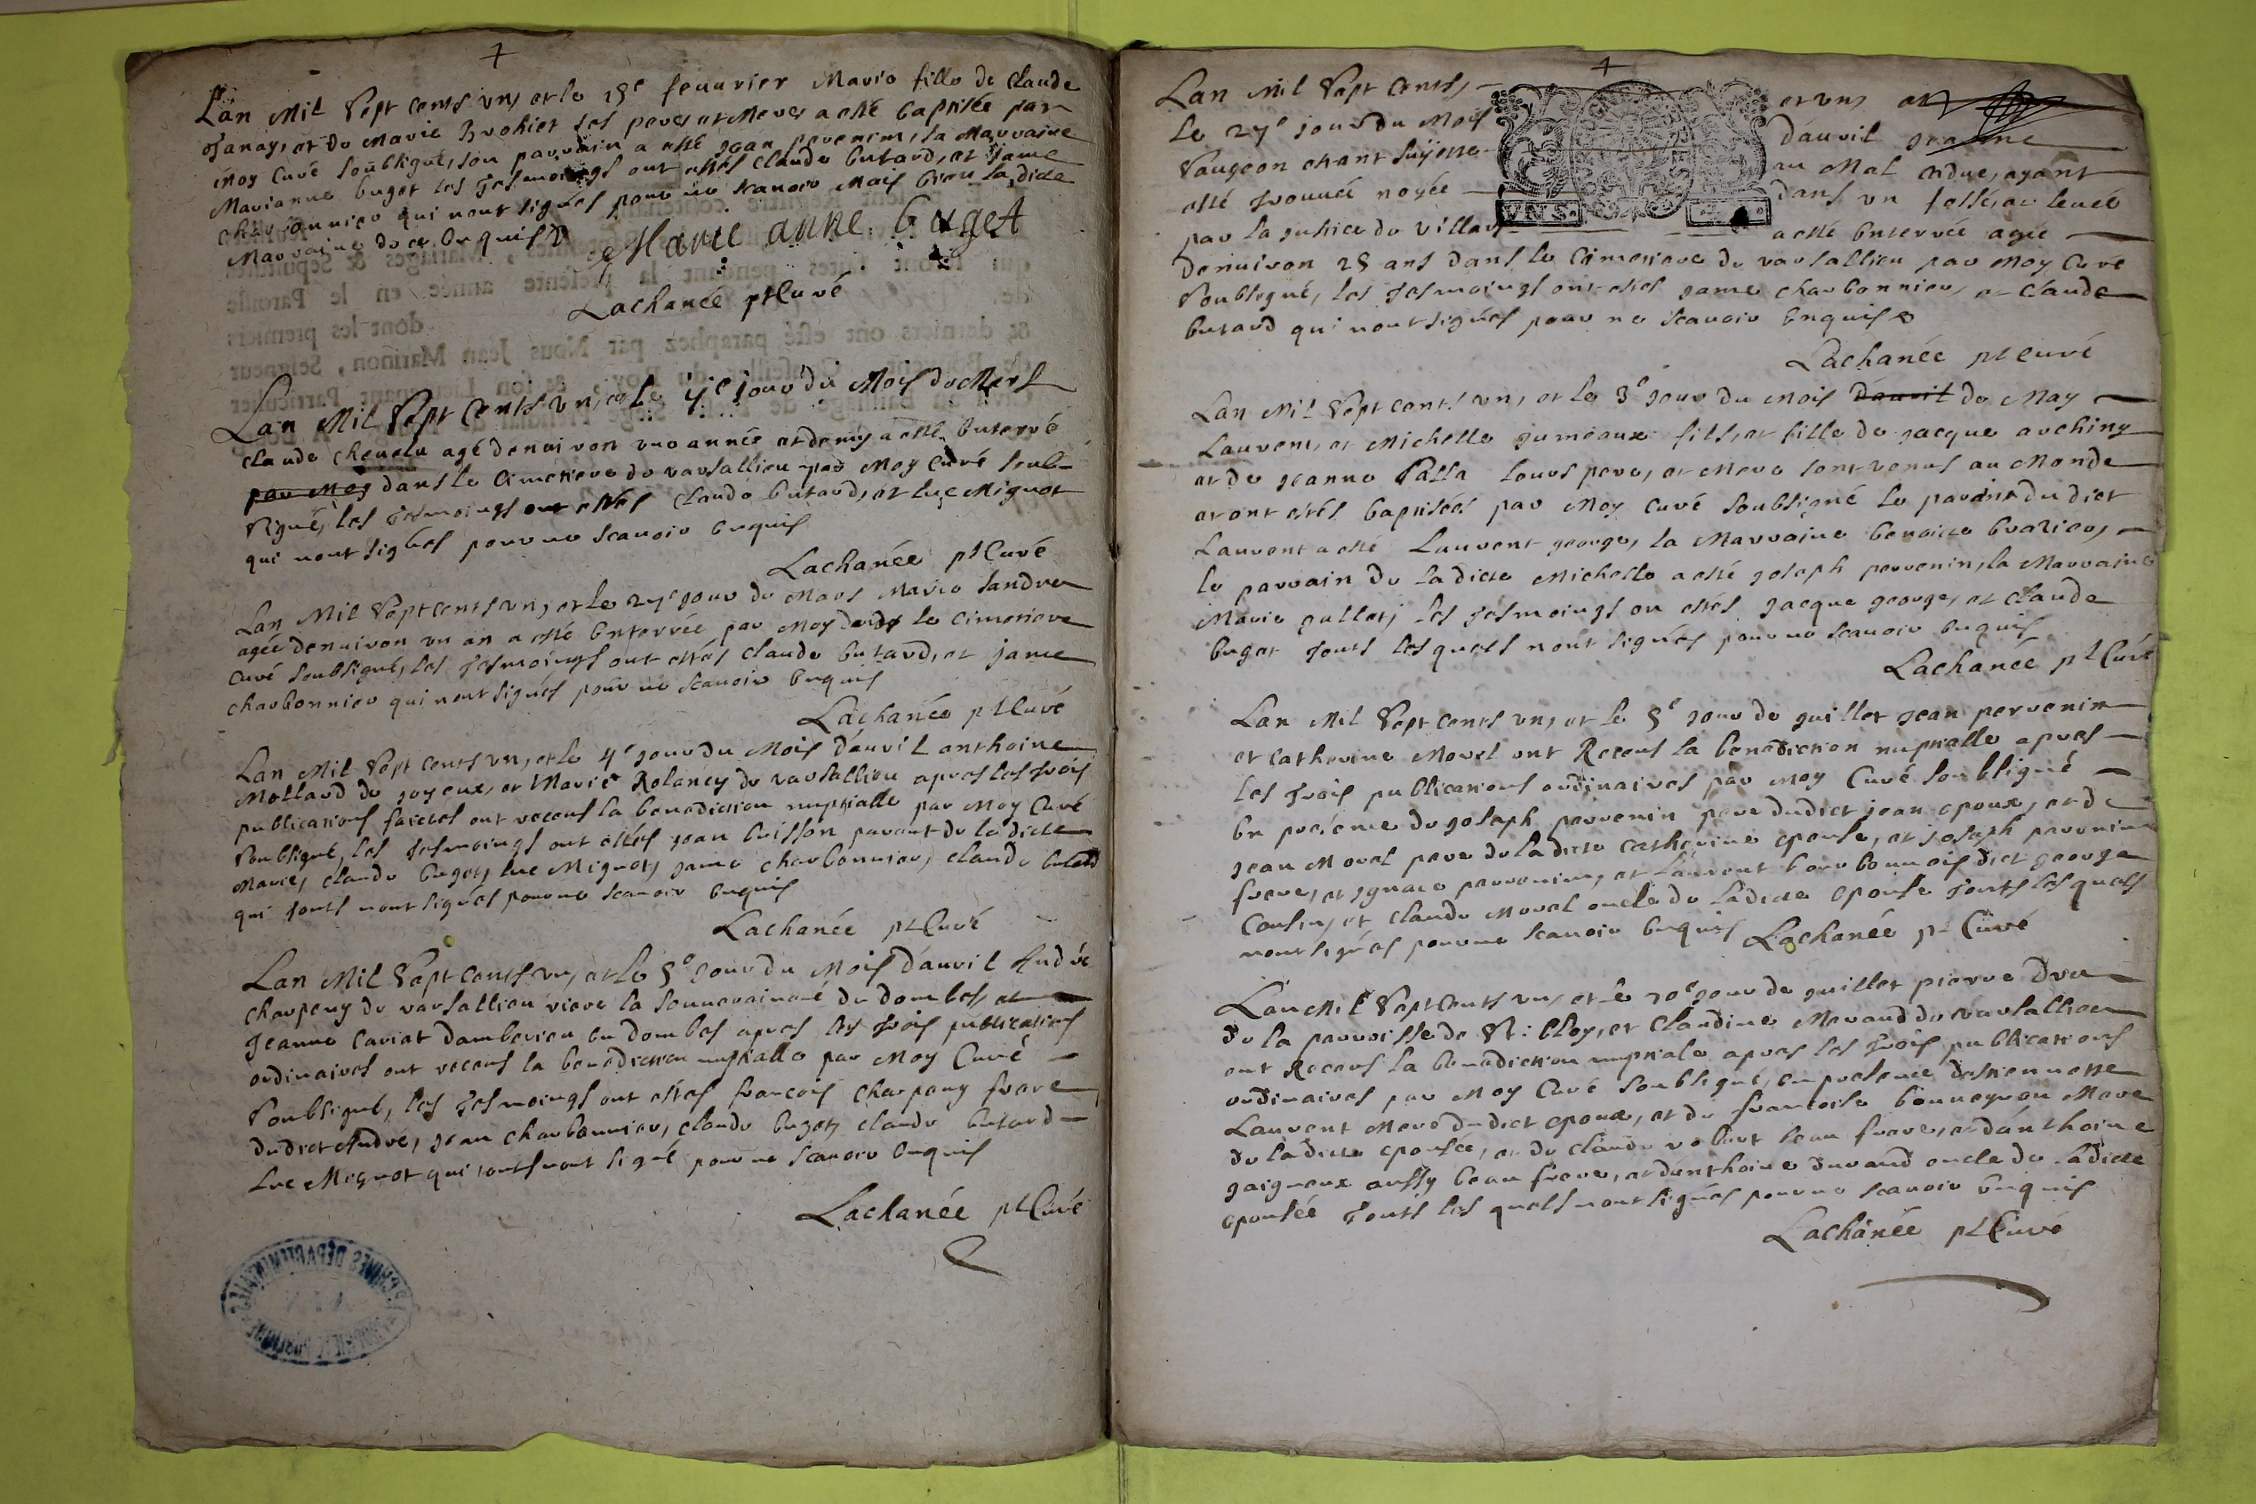 Lan Mil Sept cents un, et le 15e feuurier Marie fille de Claude
et de Marie Brohiet ses peres et Meres a esté baptisée par
moy Curé soubsigné, son parrain a esté jean pervenin, la Marraine
Marianne buget les tesmoings ont estés Claude butard, et jame
charbonnier qui nont signés pour ne scauoir Mais bien la dicte
Marraine de ce enquise
Marie anne buget
Lachanée ptr Curé
Lan Mil Sept Cents un, et le jour du Mois de Mars
claude chevelu agé denuiron une année et demy a esté enterré
par Moy dans le Cimetiere de varsallieu par Moy Curé soub-
signé, les tesmoings ont estés Claude butard, et luc Mignot
qui nont signés pour ne scauoir enquis
Lachanée ptr Curé
Lan Mil Sept cents un, et le 27e jour de Mars Marie landre
agée denuiron un an a esté enterrée par Moy dans le Cimetiere
Curé soubsigné, les tesmoings ont estés claude butard, et jame
charbonnier qui nont signés pour ne scauoir enquis
Lachanée ptr Curé
Lan Mil Sept cents un, et le 4e jour du Mois d'auril anthoine
Mollard de joyeux, et Marie Rolancy de varsallieu apres les trois
publications faictes ont receus la benediction nuptialle par Moy Curé
soubsigné, les tesmoings ont estés jean buisson parent de la dicte
Marie, claude buget, luc Mignot, jame charbonnier, claude butard
qui touts nont signés pour ne scauoir enquis
Lachanée ptr Curé
Lan Mil Sept cents un, et le 5e jour du Mois d'auril André
charpeny de varsallieu riere la souuerainneté de dombes, et
jeanne Caviat damberieu en dombes apres les trois publications
ordinaires ont receus la benediction nuptialle par Moy Curé
soubsigné, les tesmoings ont estés francois charpeny frere
du dict André, jean charbonnier, claude buget, claude butard
Luc Mignot qui touts nont signé pour ne scauoir enquis
Lachanée ptr Curé
Lan Mil Sept cents, et un, et
le 27e jour du Mois d'auril jeanne
Vaugeon etant sujette au Mal caduc, ayant
esté trouuée noyée dans un fossé, et leuée
par la justice de Villars a esté enterrée agée
denuiron 25 ans dans le Cimetiere de varsallieu par Moy Curé
soubsigné, les tesmoings ont estés jame charbonnier, et Claude
butard qui nont signés pour ne scauoir enquis
Lachanée ptr Curé
Lan Mil Sept cents un, et le 3e jour du Mois dauril de May
Laurent, et Michelle jumeaux fils, et fille de jacque archiny
et de jeanne Palla leurs pere, et Mere sont venus au Monde
et ont estés baptisés par Moy Curé soubsigné le parain du dict
Laurent a esté Laurent george, la Marraine benoitte brazier,
le parrain de la dicte Michelle a esté joseph pervenin, la Marraine
Marie gallet, les tesmoings on estés jacque george, et claude
buget touts les quels nont signés pour ne scauoir enquis
Lachanée ptr Curé
Lan Mil Sept cents un, et le 5e jour de juillet jean pervenin
et catherine Morel ont Receus la benediction nuptialle apres
les trois publications ordinaires par Moy Curé soubsigné
en presence de joseph pervenin pere du dict jean epoux, et de
jean Morel pere de la dicte catherine epouse, et joseph pervenin
frere, et ignace pervenin, et Laurent bourbonnois dict george
Cousin, et claude Morel oncle de la dicte epouse touts les quels
nont signés pour ne scauoir enquis Lachanée ptr Curé
Lan Mil Sept cents un, et le 10e jour de juillet pierre dru
de la parroisse de St: Eloy, et Claudine Marand de varsallieu
ont Receus la benediction nuptiale apres les trois publications
ordinaires par Moy Curé soubsigné, en presence d'estiennette
Laurent Mere du dict epoux, et de francoise bonneyron Mere
de la dicte epousée, et de claude robert beau frere, et d'anthoine
gaigneux aussy beau frere, et danthoine durand oncle de la dicte
epousée touts les quels nont signés pour ne scauoir enquis
Lachanée ptr Curé